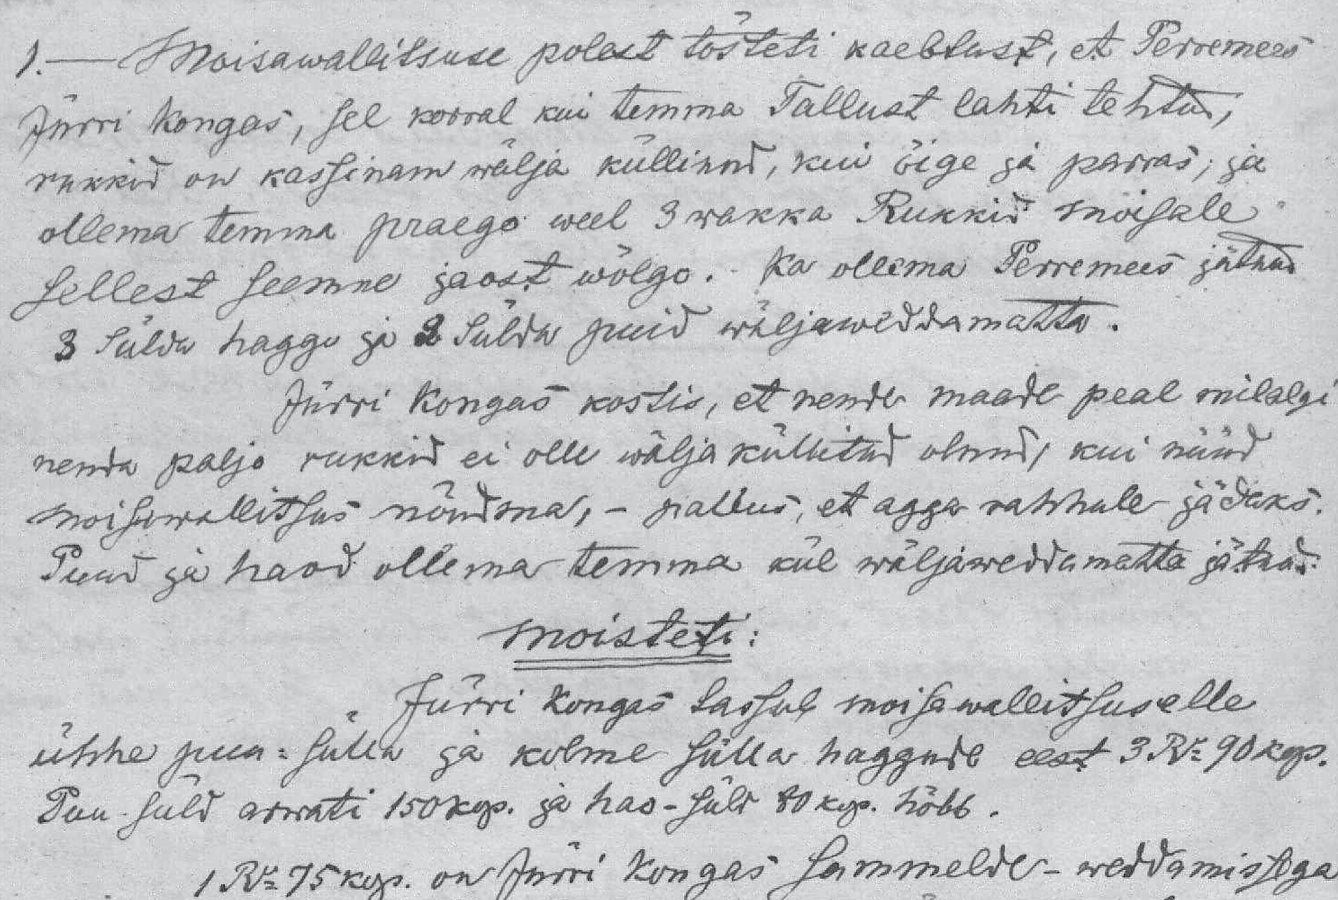 1.— Moisawallitsuse polest tösteti kaebtust, et Perremees
Jürri Kongas, sel korral kui temma Tallust lahti tehtu,
rukkid on kassinam wälja küllinud, kui öige ja parras; ja
ollema temma praego weel 3 wakka Rukkid moisale
sellest seemne jaost wölgo. - Ka ollema Perremees jätnud
3 sülda haggu ja 2 sülda puid wäljaweddamatta.
Jürri Kongas kostis, et nende maade peal milalgi
nenda paljo rukkid ei olle wälja küllitud olnud, kui nüüd
moisawallitsus nöudma, - pallus, et agga rahhule jädaks.
Puud ja haod ollema temma kül wäljaweddamatta jätnud.
Moisteti:
Jürri Kongas tassub moisawallitsuselle
ühhe puu-sülla ja kolme sülla haggude eest 3 Rr. 90 kop.
Puu-süld arwati 150 kop. ja hao-süld 80 kop. höbb.
1 Rr. 75 kop. on Jürri Kongas sammelde-weddamissega